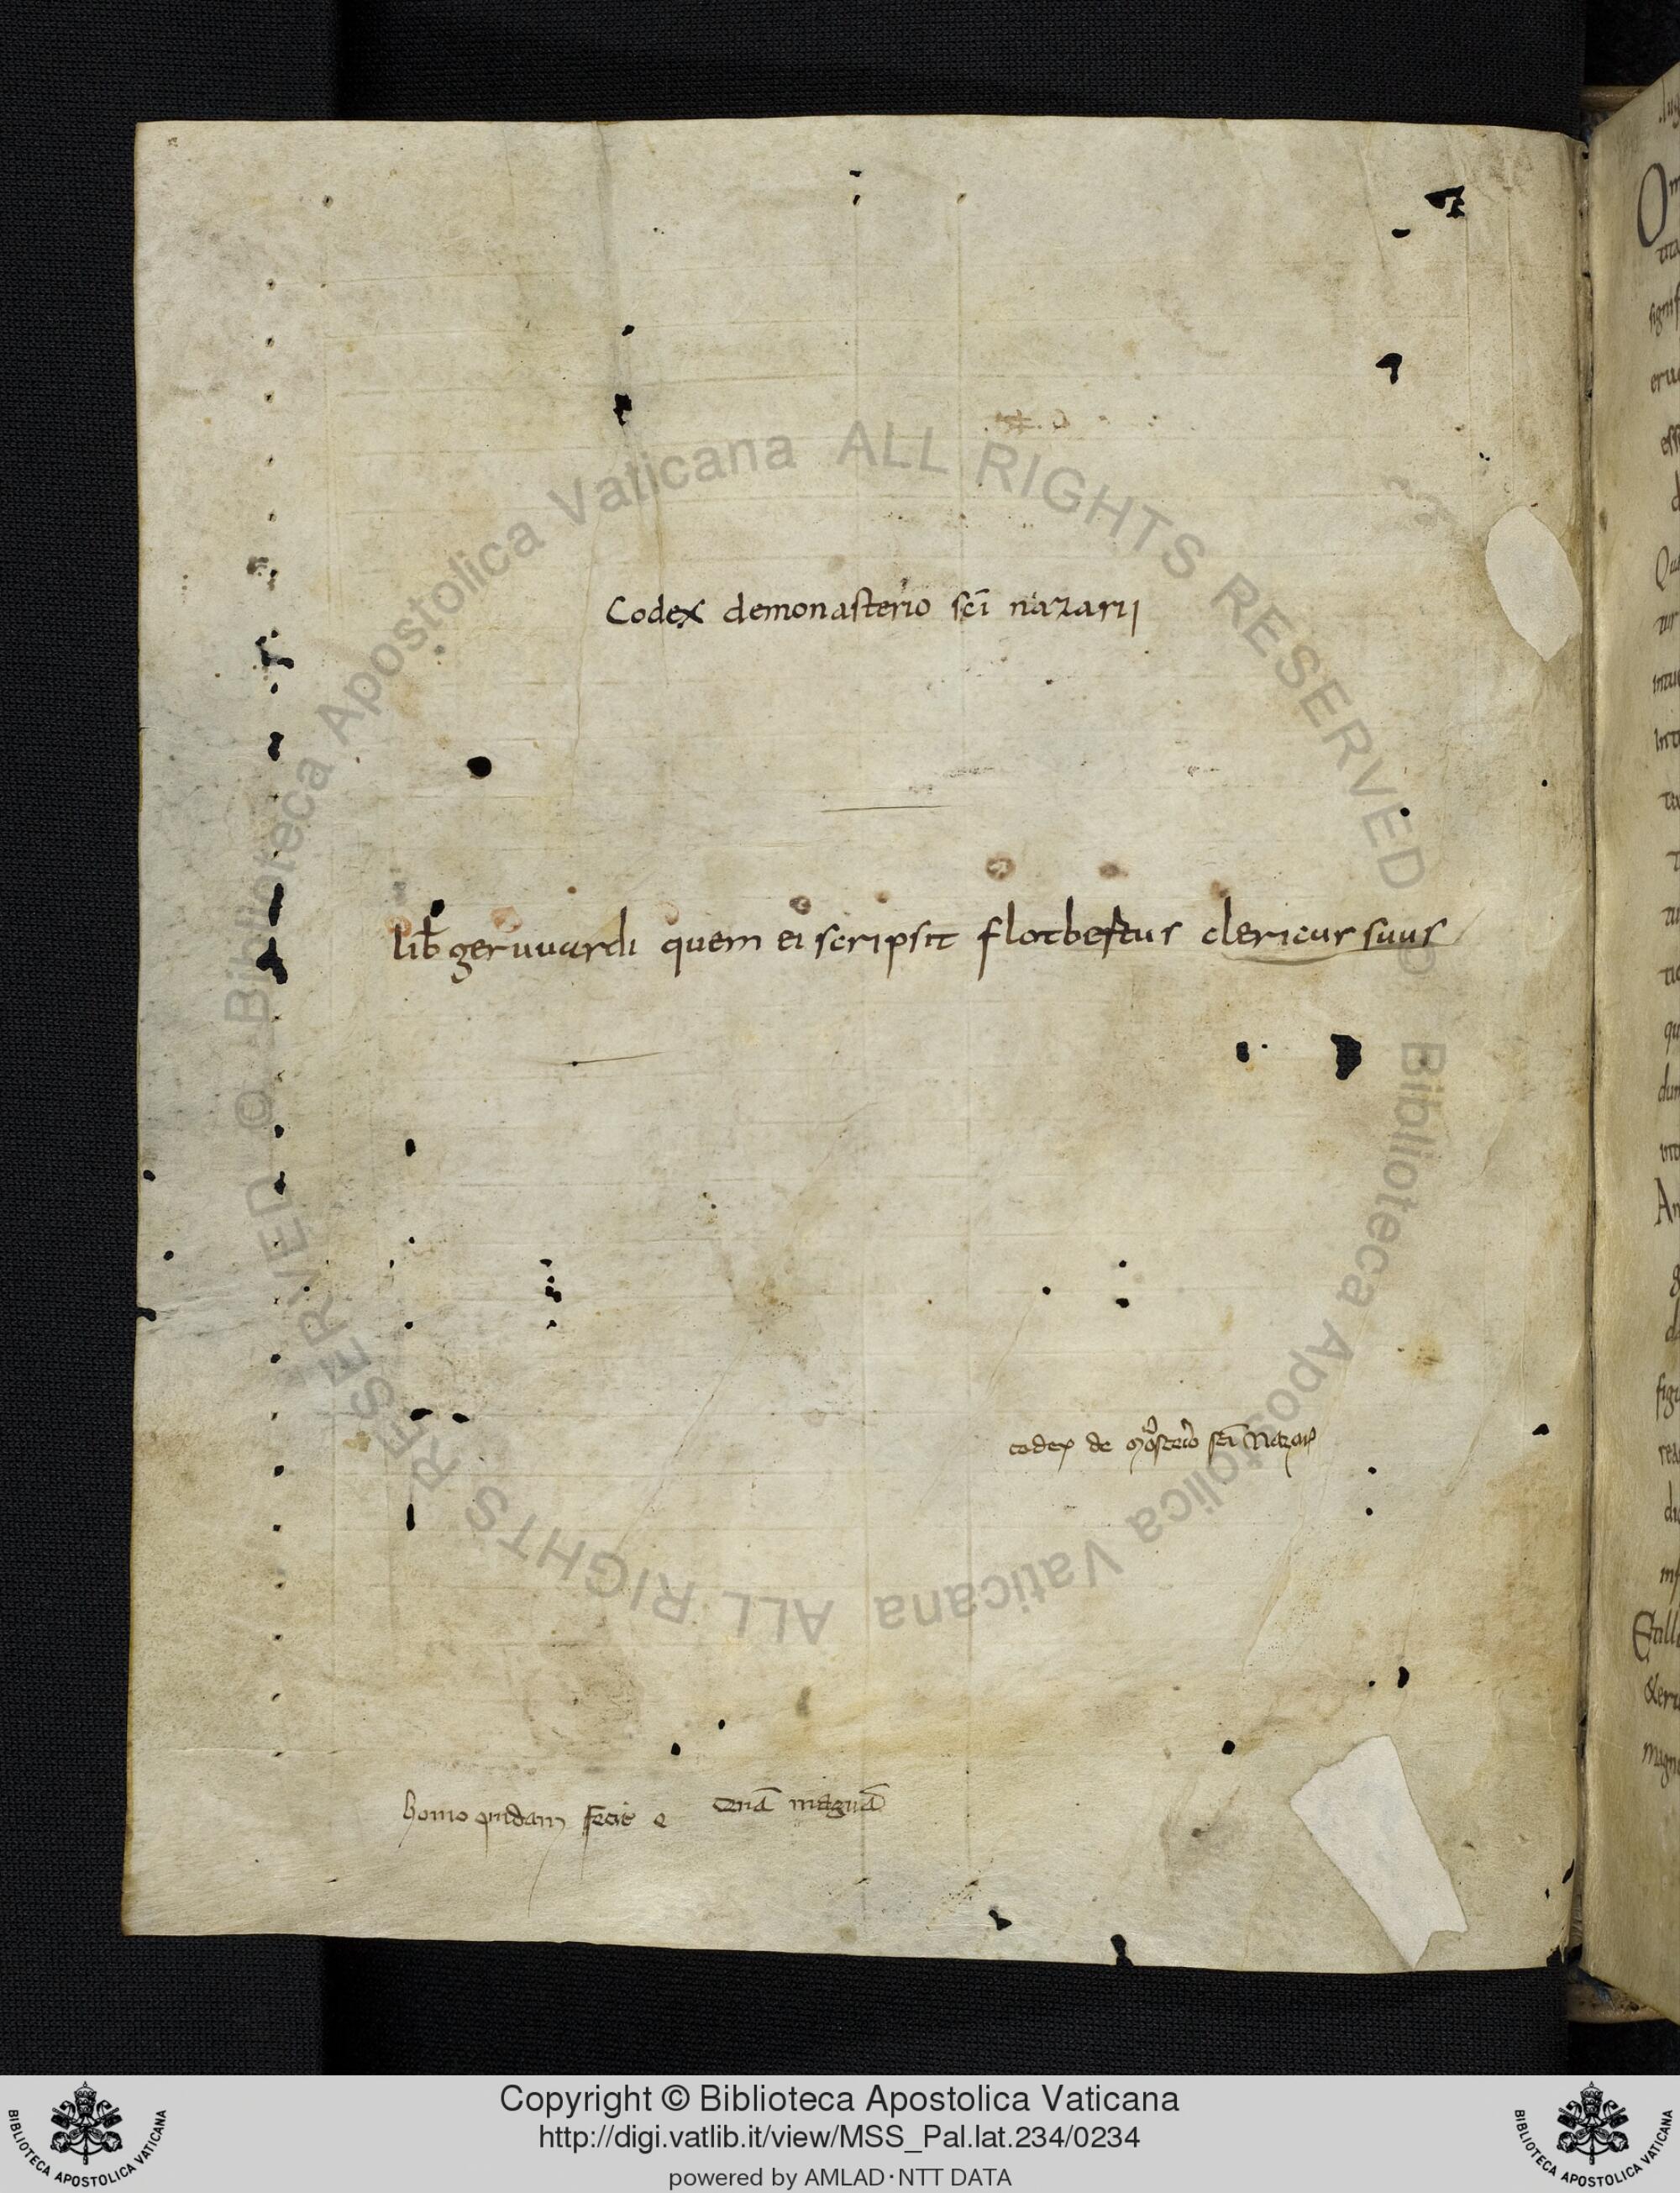 Codex demonasterio scī nazarij
lib̄ geruuardi quem ei scripsit flotbertus clericus suus
codex de moͣsteͥo scī Nazarij
homo quidam fecit e cenā magnā
Biblioteca Apostolica Vaticana ALL RIGHTS RESERVED © Biblioteca Apostolica Vaticana ALL RIGHTS RESERVED ©
Copyright © Biblioteca Apostolica Vaticana
http://digi.vatlib.it/view/MSS_Pal.lat.234/0234
powered by AMLAD·NTT DATA
BIBLIOTECA APOSTOLICA VATICANA
BIBLIOTECA APOSTOLICA VATICANA